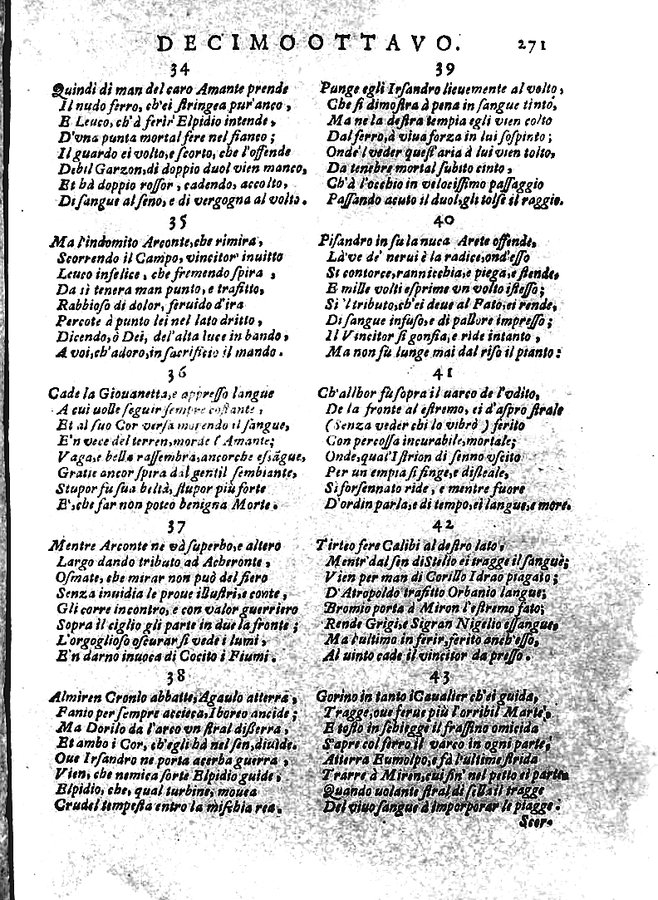 DECIMOOTTAVO. 271
34
Quindi di man del caro Amante prende
Il nudo ferro, ch'ei stringea pur'anco,
E Leuco, ch'à ferir Elpidio intende,
D'vna punta mortal fere nel fianco;
Il guardo ei volto, e scorto, che l'offende
Debil Garzon, di doppio duol vien manco,
Et hà doppio rossor, cadendo, accolto,
Di sangue al seno, e di vergogna al volto.
35
Ma l'indomito Arconte, che rimira,
Scorrendo il Campo, vincitor inuitto
Leuco infelice, che fremendo spira,
Da sì tenera man punto, e trafitto,
Rabbioso di dolor, feruido d'ira
Percote à punto lei nel lato dritto,
Dicendo, ò Dei, del'alta luce in bando,
A voi, ch'adoro, in sacrificio il mando.
36
Cade la Giouanetta, e appresso langue
A cui uolle seguir sempre costante,
Et al suo Cor versa morendo il sangue,
E'n vece del terren, morde l'Amante;
Vaga, e bella rassembra, ancorche essàgue,
Gratie ancor spira dal gentil sembiante,
Stupor fu sua beltà, stupor più forte
E', che far non poteo benigna Morte.
37
Mentre Arconte ne và superbo, e altero
Largo dando tributo ad Acheronte,
Osmate, che mirar non può del fiero
Senza inuidia le proue illustri, e conte,
Gli corre incontro, e con valor guerriero
Sopra il ciglio gli parte in due la fronte;
L'orgoglioso oscurar si vede i lumi,
E'n darno inuoca di Cocito i Fiumi.
38
Almiren Cronio abbatte, Agaulo atterra,
Fanio per sempre accieca, Iboreo ancide;
Ma Dorilo da l'arco vn stral disserra,
Et ambo i Cor, ch'egli hà nel sen, diuide.
Oue Irsandro ne porta acerba guerra,
Vien, che nemica sorte Elpidio guide,
Elpidio, che, qual turbine, mouea
Crudel tempesta entro la mischia rea.
39
Punge egli Irsandro lieuemente al volto,
Che si dimostra à pena in sangue tinto,
Ma ne la destra tempia egli vien colto
Dal ferro, à viua forza in lui sospinto;
Onde'l veder quest'aria à lui vien tolto,
Da tenebre mortal subito cinto,
Ch'à l'occhio in velocissimo passaggio
Passando acuto il duol, gli tolse il raggio.
40
Pisandro in su la nuca Arete offende,
Là've de' nerui è la radice, ond'esso
Si contorce, rannicchia, e piega, e stende,
E mille volti esprime vn volto istesso;
Sì 'l tributo, ch'ei deue al Fato, ei rende,
Di sangue infuso, e di pallore impresso;
Il Vincitor si gonfia, e ride intanto,
Ma non fù lunge mai dal riso il pianto:
41
Ch'allhor fù sopra il uarco de l'vdito,
De la fronte al estremo, ei d'aspro strale
(Senza veder chi lo vibrò) ferito
Con percossa incurabile, mortale;
Onde, qual'Istrion di senno vscito
Per un empia si finge, e disleale,
Si forsennato ride, e mentre fuore
D'ordin parla, e di tempo, ei langue, e more.
42
Tirteo fere Calibi al destro lato,
Mentr'dal sen di Stelio ei tragge il sangue;
Vien per man di Corillo Idrao piagato;
D'Atropoldo trafitto Orbanio langue;
Bromio porta à Miron l'estremo fato;
Rende Grigi, e Sigran Nigelio essangue,
Ma l'ultimo in ferir, ferito anch'esso,
Al uinto cade il vincitor da presso.
43
Gorino in tanto i Caualier ch'ei guida,
Tragge, oue ferue più l'orribil Marte,
E tosto in schiegge il frassino omicida
S'apre col ferro il varco in ogni parte,
Atterra Eumolpo, e fà l'ultime strida
Trarre à Miren, cui fin' nel petto ei parte
Quando uolante stral di si la il tragge
Del viuo sangue à imporporar le piagge:
Scor-